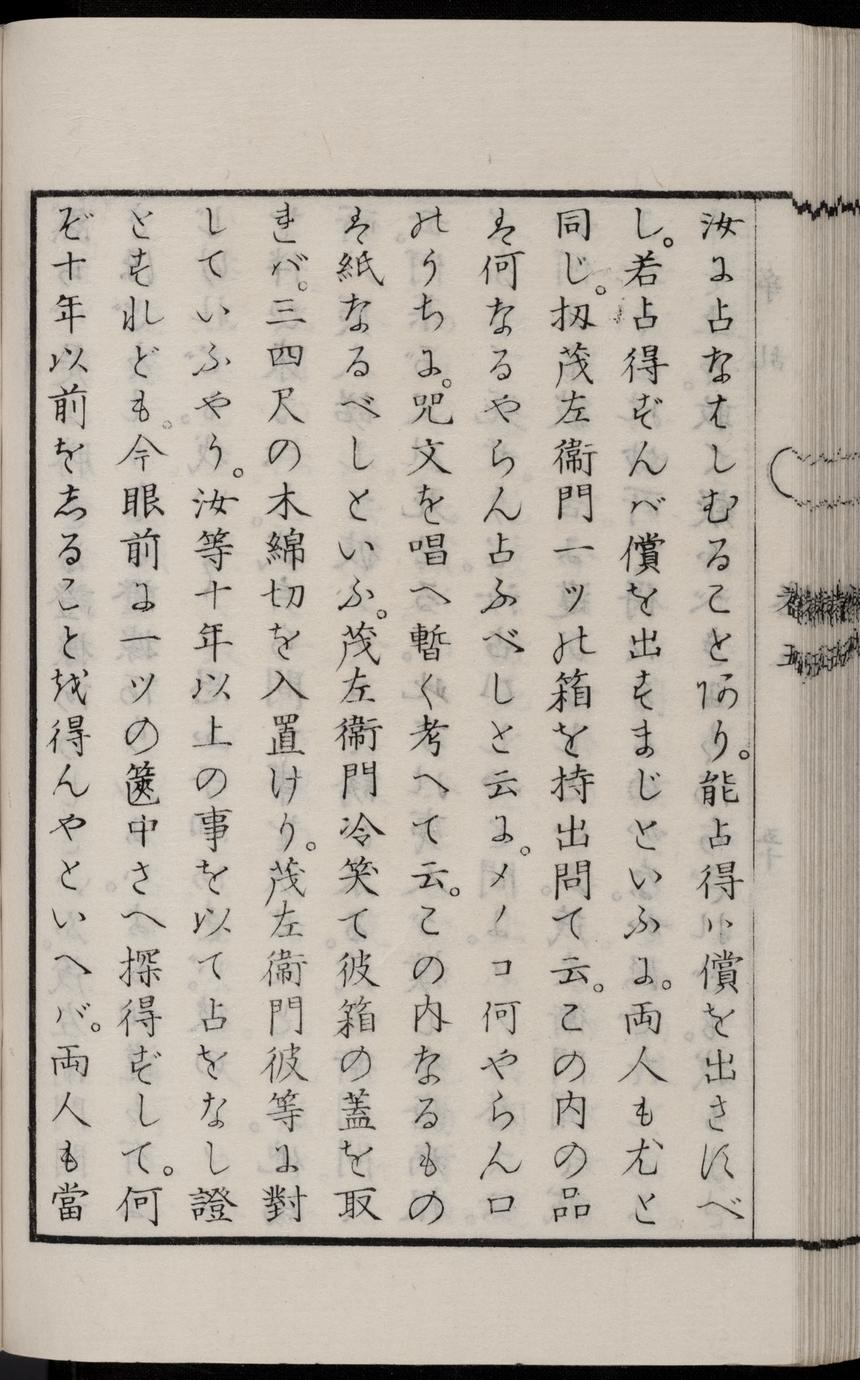 汝に占なはしむることあり。能占得ハ償を出さすべ
し。若占得ずんバ償を出すまじといふに。両人も尤と
同じ。扨茂左衞門一ツの箱を持出問て云。この内の品
は何なるやらん占ふべしと云に。メノコ何やらん口
のうちに。咒文を唱へ暫く考へて云。この内なるもの
は紙なるべしといふ。茂左衞門冷笑て彼箱の蓋を取
れバ。三四尺の木綿切を入置けり。茂左衞門彼等に對
していふやう。汝等十年以上の事を以て占をなし證
とすれども。今眼前に一ツの篋中さへ探得ずして。何
ぞ十年以前を志ること越得んやといへバ。両人も當